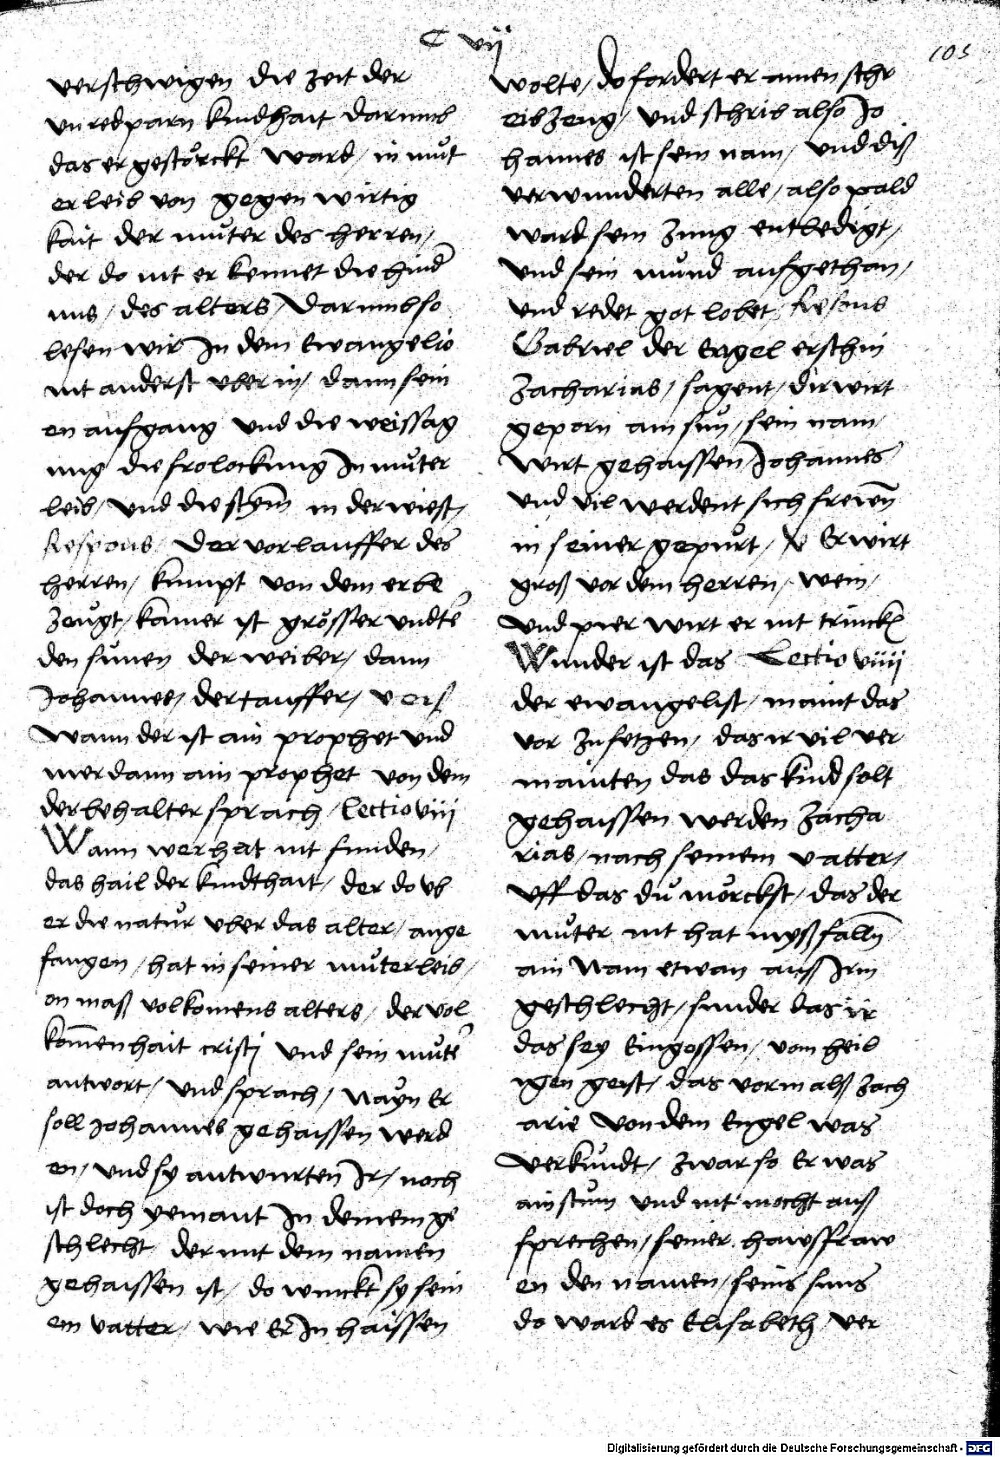 C vij
105
verschwigen die zeit der
vnredparn kindhait darumb
das er gestörckt ward / in můt
erleib von gegen wirtig
kait der můter des herren /
der do nit er kennet die hind
nus / des alters / Darumb so
lesen wir In dem Ewangelio
nit anderst vber in / dann sein
en aufgang vnd die weissag
ung die frolockung In můter
leib / vnd die stym̄ in der wiest /
Respons / Der vorlauffer des
herren / kumpt von dem er be
zeůgt / kainer ist grösser vndte
den sunen der weiber / dann
Johannes / der tauffer / vers
Wann der ist ain prophet vnd
mer dann ain prophet von dem
der behalter sprach / Lectio viij
Wann wer hat nit funden /
das hail der kindthait / der do vb
er die natůr vber das alter / ange
fangen / hat in seiner můterleib /
on maß volkomens alters / der vol
kom̄enhait cristi vnd sein můte
antwort / vnd sprach / Nayn Er
soll Johannes gehaissen werd
en / vnd sy antwurten Ir / noch
ist doch yemant In deinem ge
schlecht der mit dem namen
gehaissen ist / do winckt sy sein
em vatter / wie Er In haissen
wolte / do fordert er ainen schr
eibzeug / vnd schrib also Jo
hannes ist sein nam / vnd diß
verwunderten alle / also pald
ward sein zung entbedigt /
vnd sein mund aufgethan /
vnd redet got lobet Respons
Gabriel der Engel erschin
Zacharias / sagent / dir wirt
geporn ain sun / sein nam /
wirt gehaissen Johannes
vnd vil werdent sich frewen̄
in seiner gepůrt / V Er wirt
groß vor dem herren / wein /
vnd pier wirt er nit trincken
Wunder ist das Lectio viiij
der ewangelist / maint das
vor zu setzen / das ir vil ver
mainten das das kind solt
gehaissen werden Zacha
rias / nach seinem vatter /
vff das dů mörckst / das der
můter nit hat myßfalln̄
ain Nam etwan auß Irm
geschlecht / sunder das ir
das sey Eingossen / vom heil
igen geist / das vorm alß Zach
arie von dem Engel was
verkündt / zwar so Er was
ain stum vnd nit mocht auß
sprechen / seiner hawsfraw
en den namen / seins suns
do ward es Elisabeth / ver
Digitalisierung gefördert durch die Deutsche Forschungsgemeinschaft - DFG